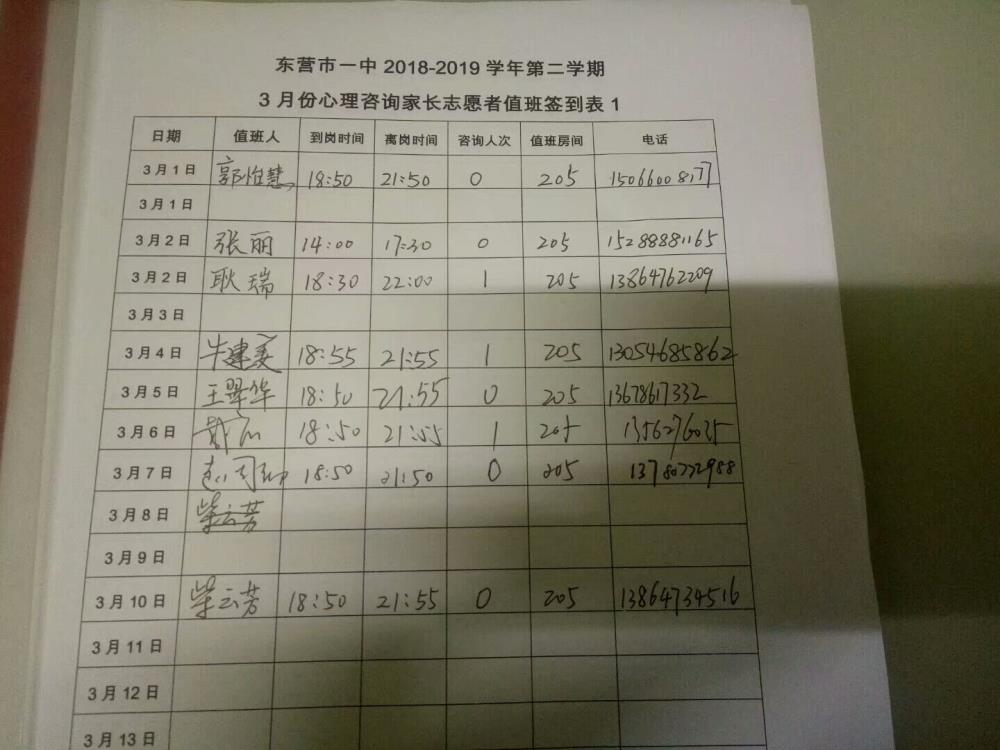 东营市一中 2018-2019 学年第二学期
3 月份心理咨询家长志愿者值班签到表 1
日期 值班人 到岗时间 离岗时间 咨询人次 值班房间 电话
3 月 1 日 郭怡慧 18:50 21:50 0 205
3 月 1 日
3 月 2 日 张丽 14:00 17:30 0 205 15288881165
3 月 2 日 耿瑞 18:30 22:00 1 205 13864762209
3 月 3 日
3 月 4 日 牛建美 18:55 21:55 1 205 13054685862
3 月 5 日 王翠华 18:50 21:55 0 205 13678617332
3 月 6 日 18:50 21:55 1 205
3 月 7 日 18:50 21:50 0 205 13780722988
3 月 8 日 柴云芳
3 月 9 日
3 月 10 日 柴云芳 18:50 21:55 0 205 13864734516
3 月 11 日
3 月 12 日
3 月 13 日